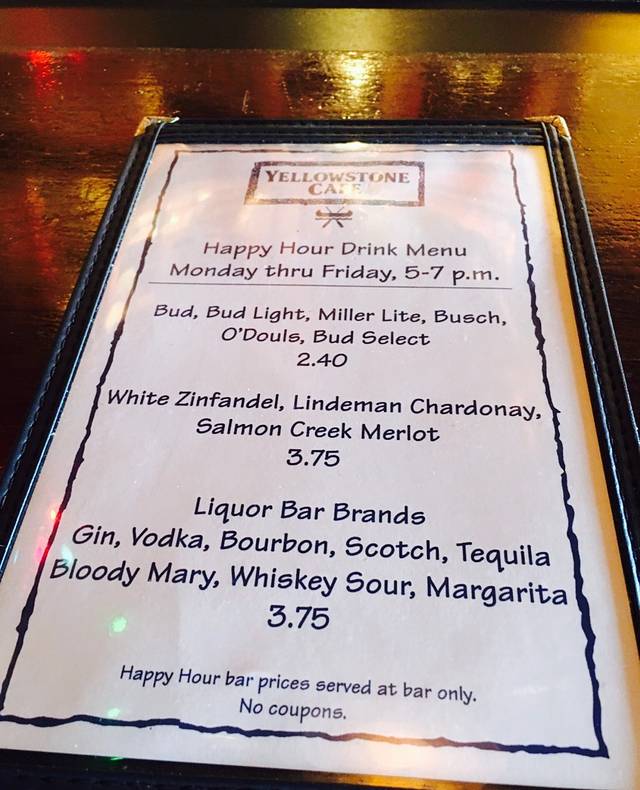 YELLOWSTONE
CAFE
Happy Hour Drink Menu
Monday thru Friday, 5-7 p.m.
Bud, Bud Light, Miller Lite, Busch,
O'Douls, Bud Select
2.40
White Zinfandel, Lindeman Chardonay,
Salmon Creek Merlot
3.75
Liquor Bar Brands
Gin, Vodka, Bourbon, Scotch, Tequila
Bloody Mary, Whiskey Sour, Margarita
3.75
Happy Hour bar prices served at bar only.
No coupons.